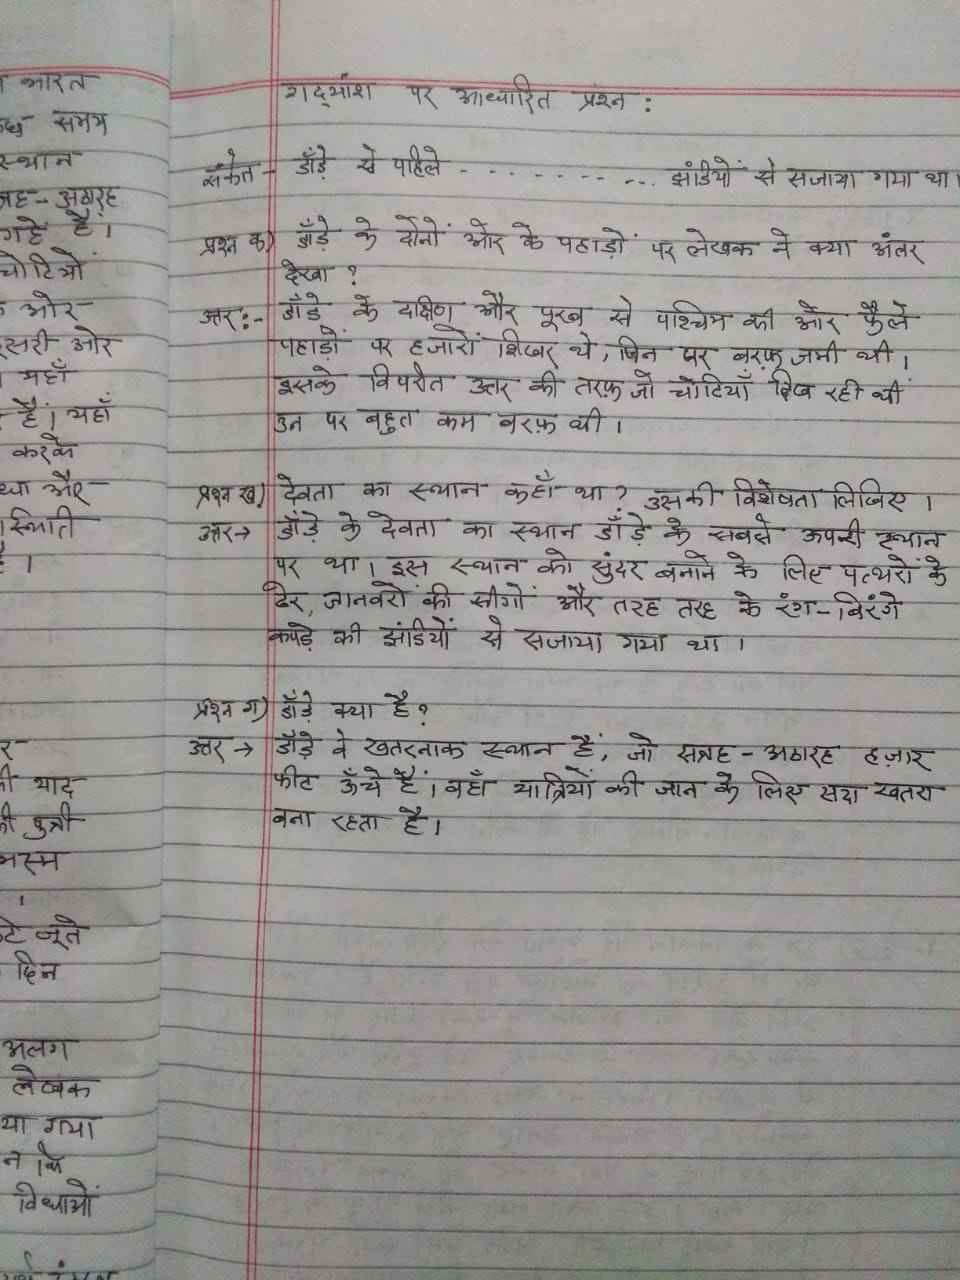 भारत
समय
स्थान
अठारह
है।
चोटियों
ओर
दूसरी ओर
यहाँ
है। यहाँ
करके
और
स्थिति
है।
याद
की पुत्री
भस्म
।
जूते
दिन
अलग
लेखक
गया
विधाओं
गद्यांश पर आधारित प्रश्न :
संकेत - डाँड़े से पहिले - . . . . . . . . . . झंडियों से सजाया गया था।
प्रश्न क) डाँड़े के दोनों ओर के पहाड़ों पर लेखक ने क्या अंतर
देखा ?
उत्तर:- डाँड़े के दक्षिण और पूरब से पश्चिम की ओर फैले
पहाड़ों पर हजारों शिखर थे, जिन पर बरफ़ जमी थी।
इसके विपरीत उत्तर की तरफ़ जो चोटियाँ दिख रही थीं
उन पर बहुत कम बरफ़ थी।
प्रश्न ख) देवता का स्थान कहाँ था? उसकी विशेषता लिखिए।
उत्तर → डाँड़े के देवता का स्थान डाँड़े के सबसे ऊपरी स्थान
पर था। इस स्थान को सुंदर बनाने के लिए पत्थरों के
ढेर, जानवरों की सींगों और तरह तरह के रंग-बिरंगे
कपड़े की झंडियों से सजाया गया था।
प्रश्न ग) डाँड़े क्या है?
उत्तर → डाँड़े वे खतरनाक स्थान हैं, जो सत्रह - अठारह हज़ार
फीट ऊँचे हैं। वहाँ यात्रियों की जान के लिए सदा खतरा
बना रहता है।